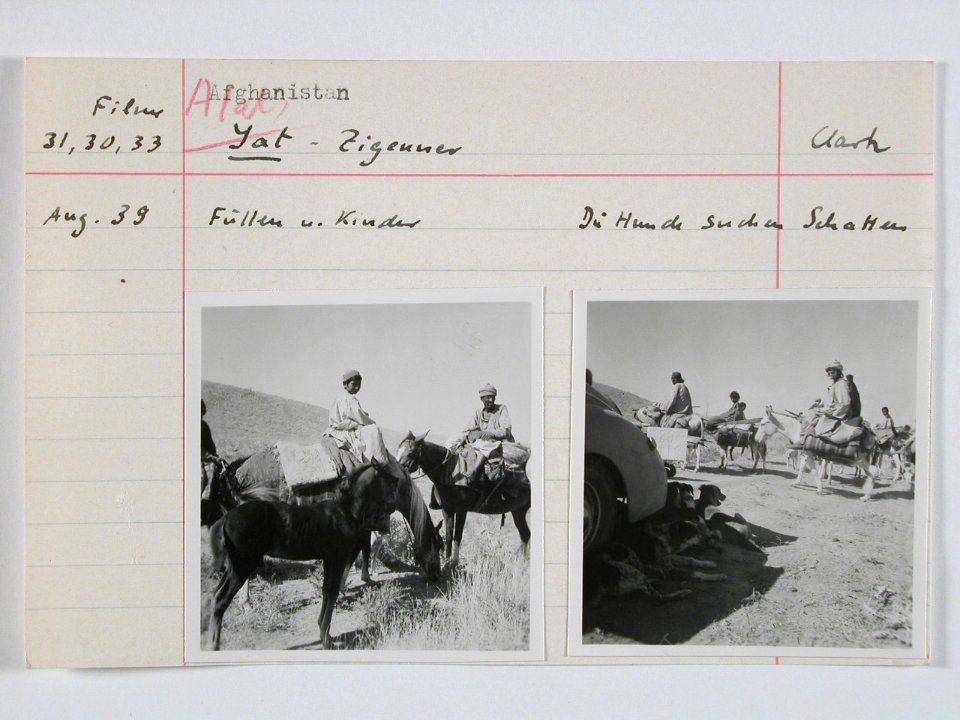 Afghanistan
Filme
31, 30, 33
Jat - Zigeuner
Clark
Aug. 39
Füllen u. Kinder
Die Hunde suchen Schatten